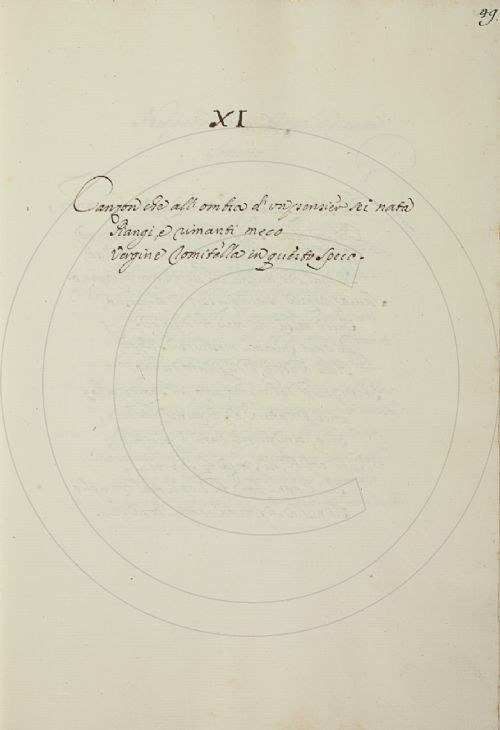 49.
XI
Canzon che all' ombra d' un pensier sei nata
Piangi, e rimanti meco
Vergine Romitella in questo speco.